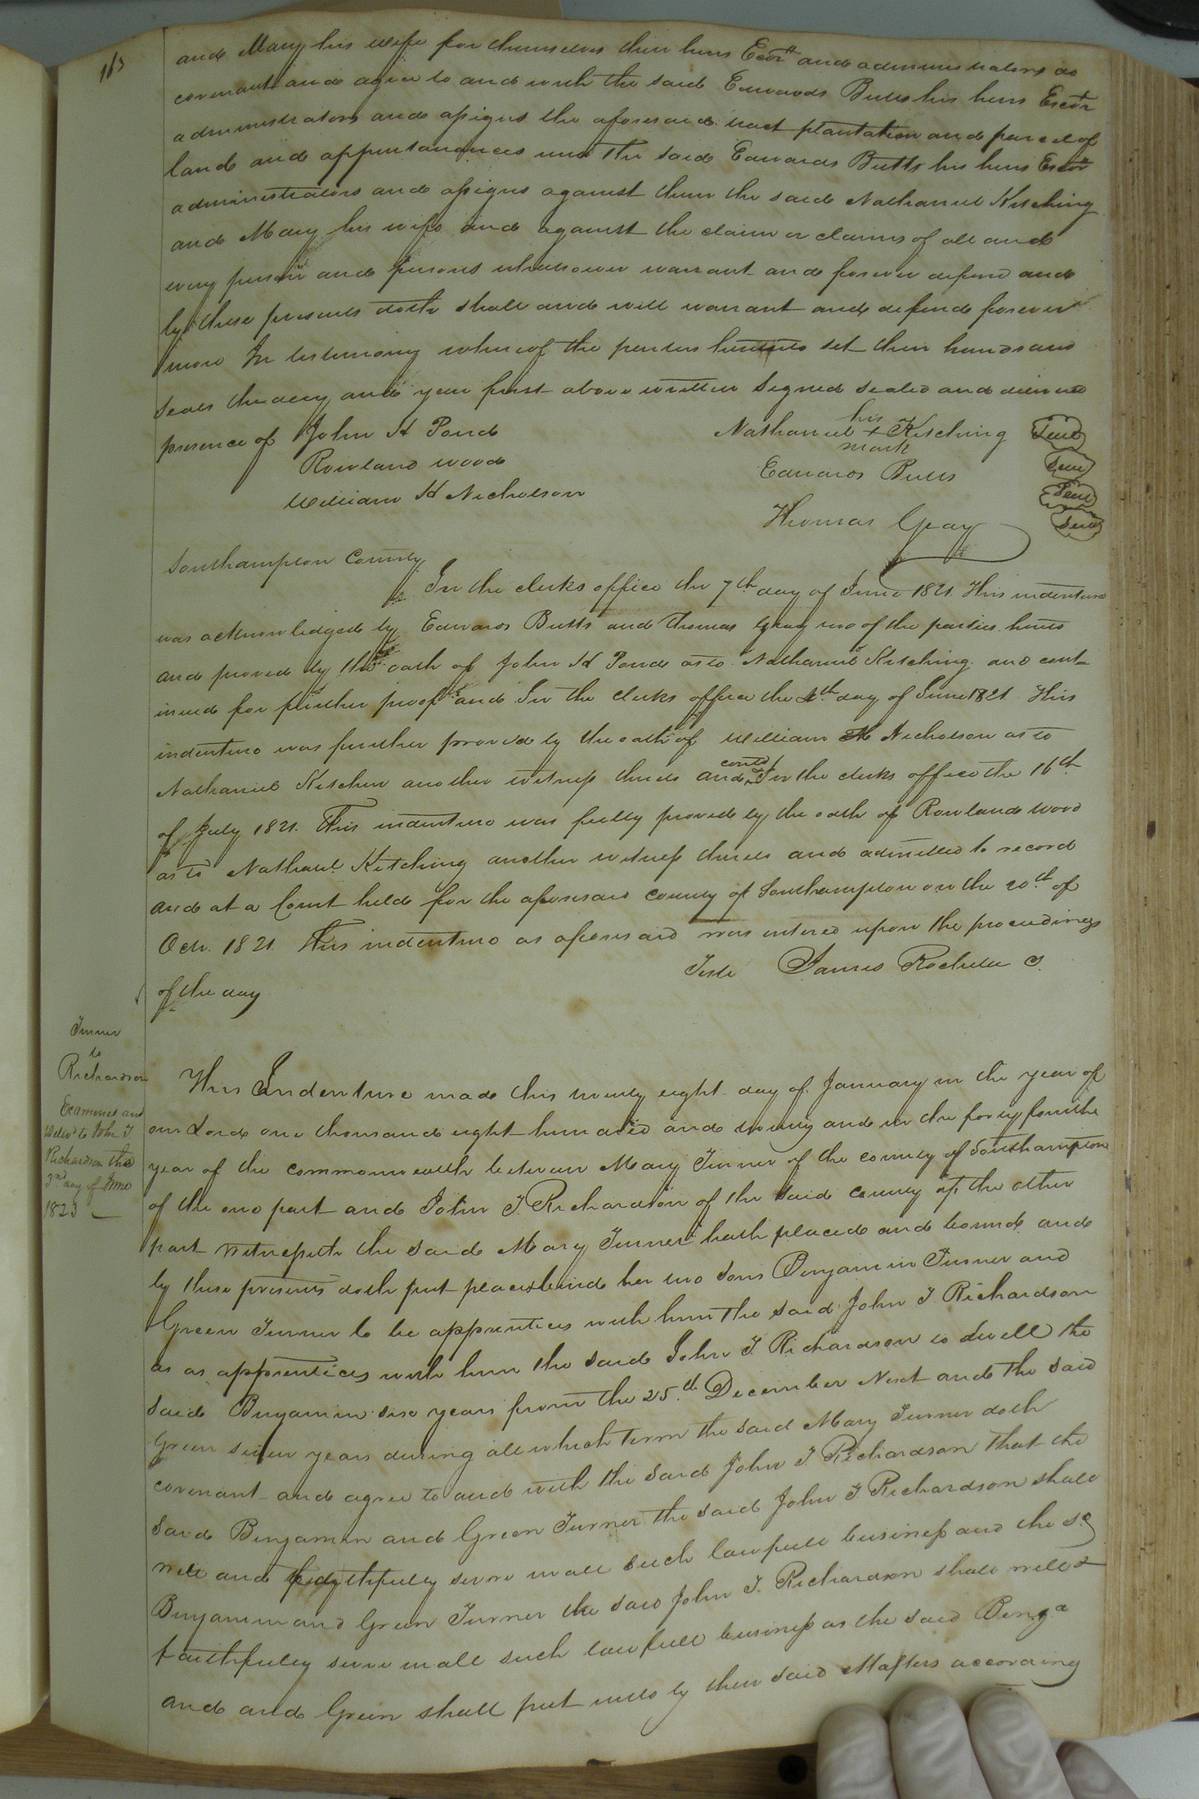 163
and Mary his wife for themselves their heirs Exors and administrators do
covenant and agree to and with the said Edwards Butts his heirs Exors
administrators and assigns the aforesaid tract plantation and parcel of
land and appurtanances unto the said Edwards Butts his heirs Exors
administrators and assigns against them the said Nathaniel Kitching
and Mary his wife and against the claim or claims of all and
every person and persons whatsoever warrant and forever defend and
by these presents doth shall and will warrant and defend forever
more In testimony whereof the parties hereunto set their hands and
seals the day and year first above written Signed sealed and delivered
presence of John H Pond
Rowland Wood
William H Nicholson
Nathaniel his + mark Kitching Seal
Edwards Butts Seal
Thomas Gray Seal
Seal
Southampton County
In the clerks office the 7th day of June 1821. This indenture
was acknowledged by Edwards Butts and Thomas Gray two of the parties hereto
and proved by the oath of John H Pond as to Nathaniel Kitching and cont
inued for further proof and In the clerks office the day of June 1821 This
indenture was further proved by the oath of William H Nicholson as to
Nathaniel Kitchen another witness thereto and contd In the clerks office the 16th
of July 1821. This indenture was fully proved by the oath of Rowland Wood
as to Nathanl. Kitching another witness thereto and admitted to record
and at a Court held for the aforesaid county of Southampton on the 20th of
Octr. 1821. This indenture as aforesaid was entered upon the proceedings
of the day
Teste James Rochelle C.
Turner
to
Richardson
Examined and
deliv'd to John T
Richardson this
3rd day of June
1823
This Indenture made this twenty eight day of January in the year of
our Lord one thousand eight hundred and twenty and in the forty fourth
year of the commonwealth between Mary Turner of the county of Southampton
of the one part and John T. Richardson of the said county of the other
part Witnesseth the said Mary Turner hath placed and bound and
by these presents doth put place & bind her two sons Benjamin Turner and
Green Turner to be apprentices with him the said John T Richardson
as as apprentices with him the said John T Richardson to dwell the
said Benjamin six years from the 25th December Next and the said
Green seven years during all which term the said Mary Turner doth
covenant and agree to and with the said John T Richardson that the
said Benjamin and Green Turner the said John T Richardson shall
well and faithfully serve in all such lawfull business and the sd
Benjamin and Green Turner the said John T. Richardson shall well &
faithfully serve in all such lawfull business as the said Benja
and and Green shall put unto by their said Masters according